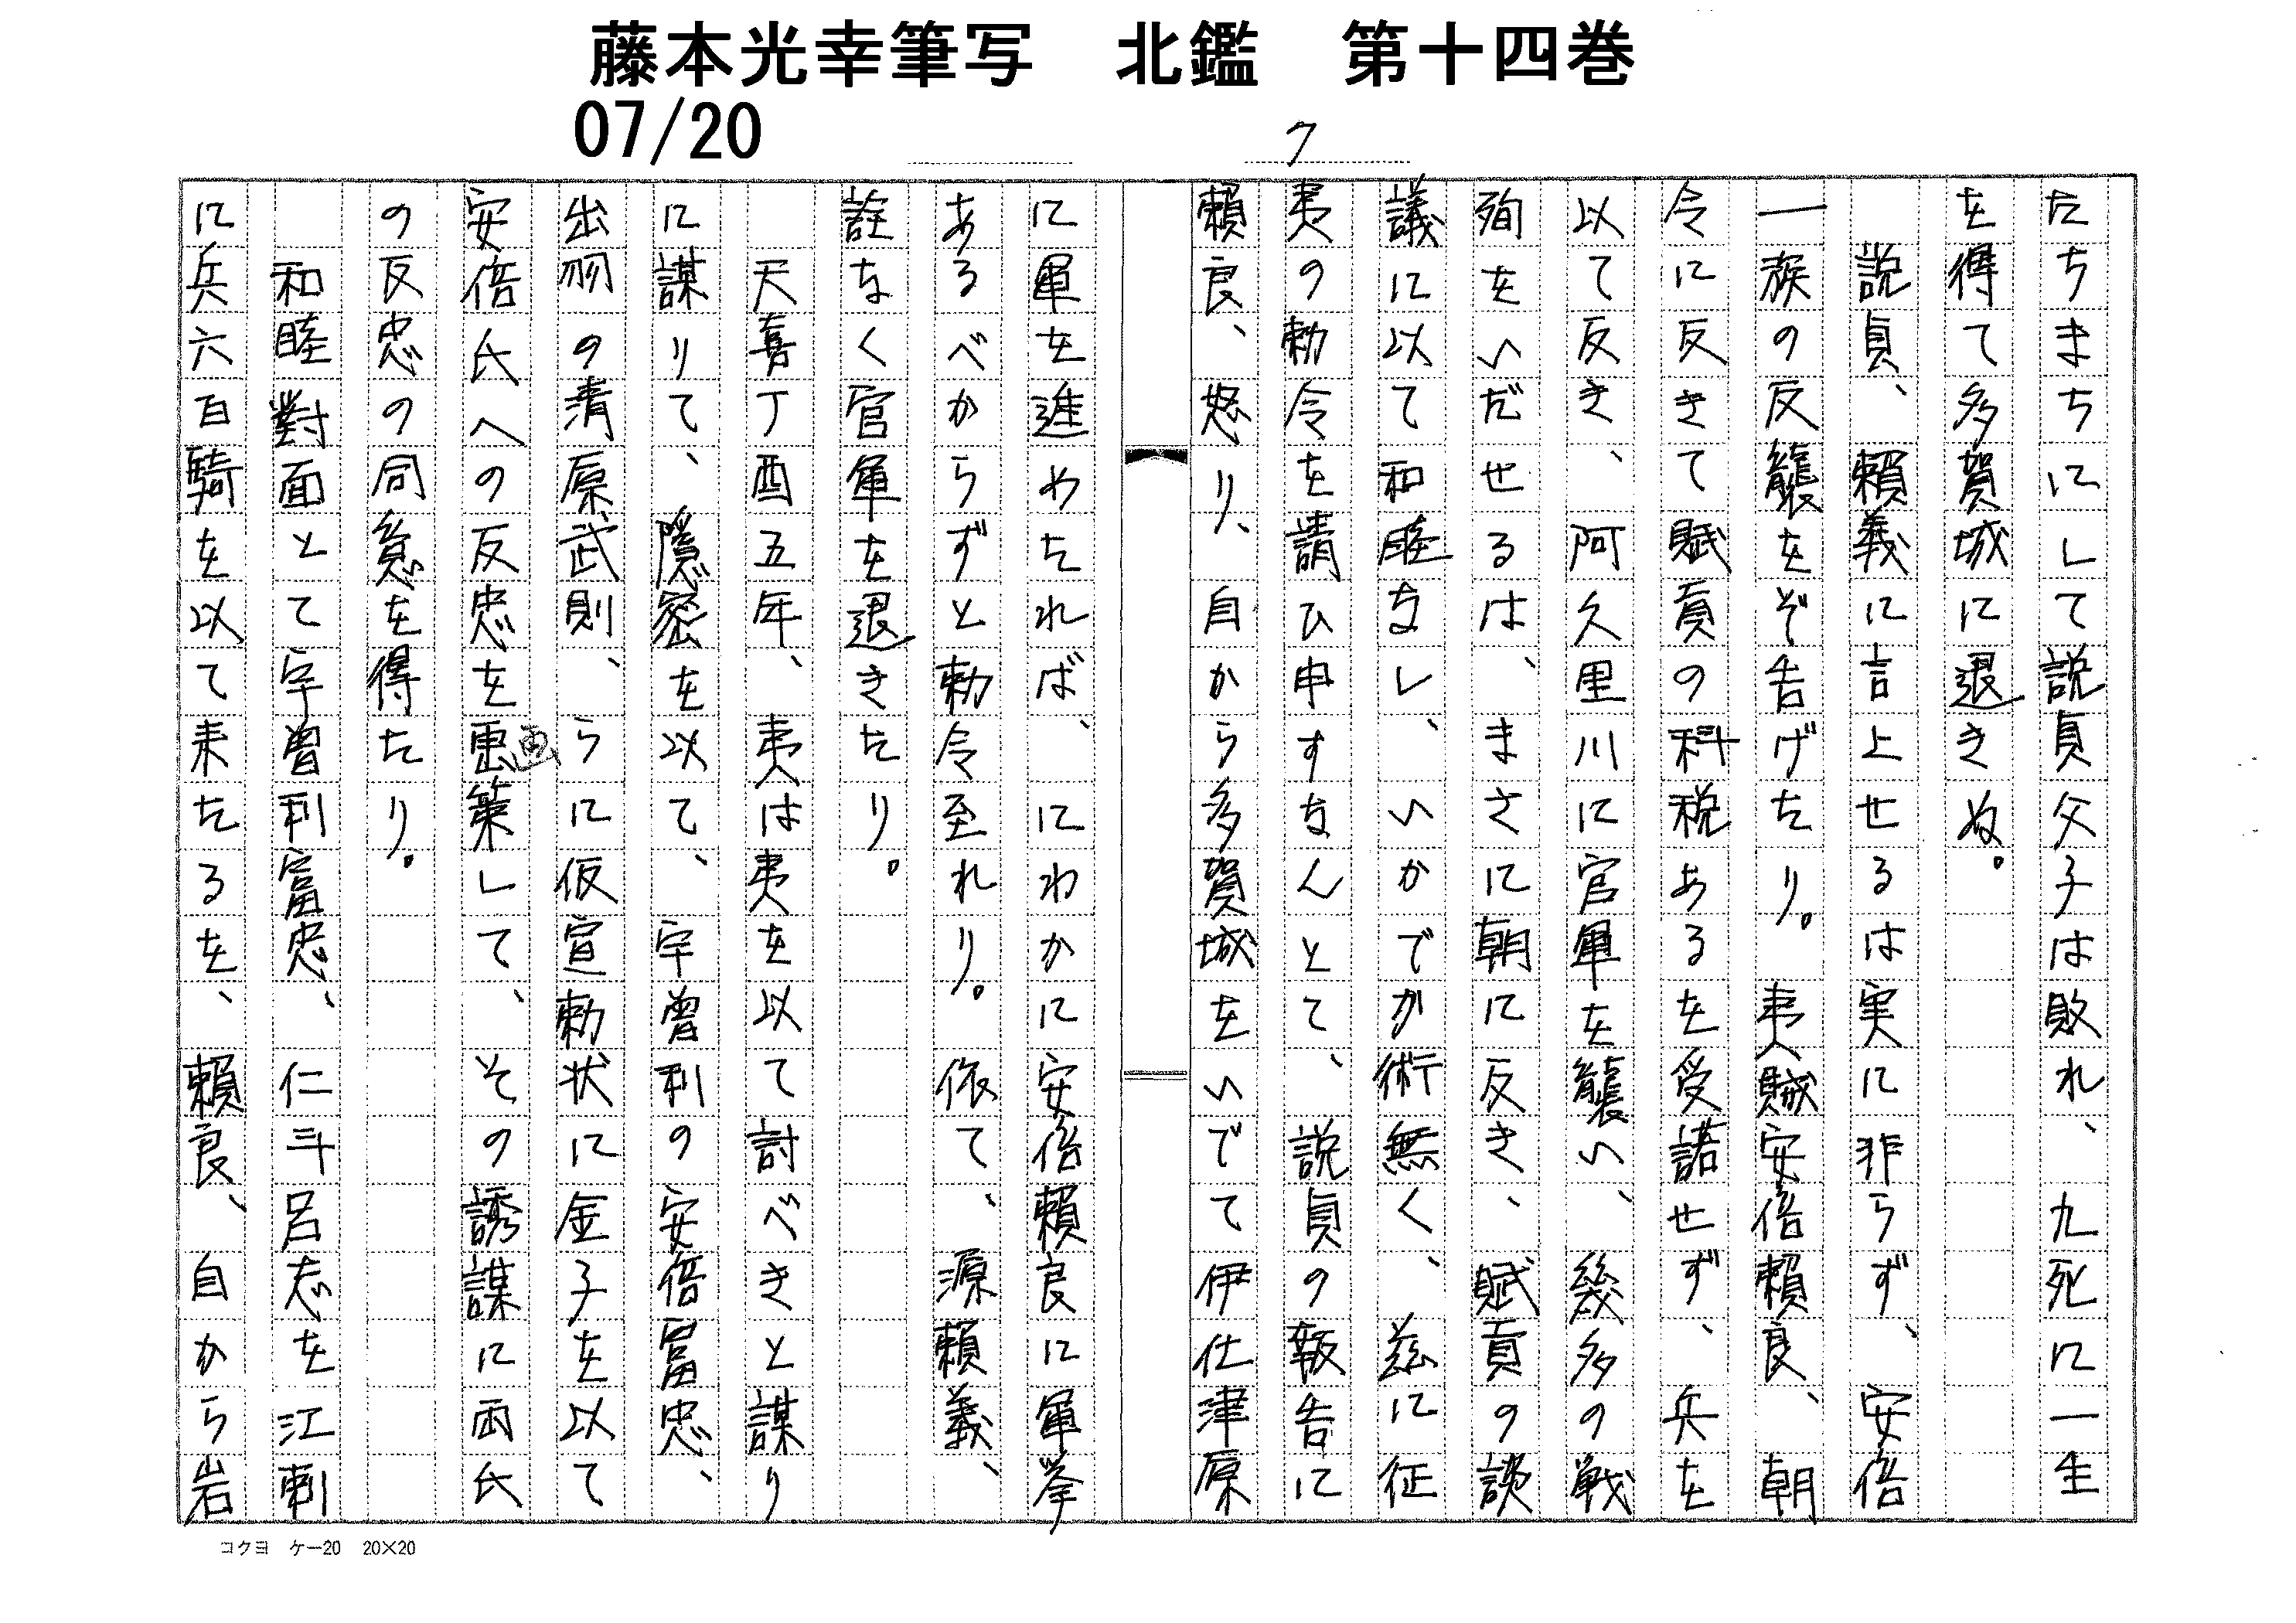 藤本光幸筆写　北鑑　第十四巻
07/20
7
たちまちにして説貞父子は敗れ、九死に一生
を得て多賀城に退きぬ。
説貞、頼義に言上せるは実に非らず、安倍
一族の反襲をぞ告げたり。夷賊安倍頼良、朝
令に反きて賦貢の科税あるを受諾せず、兵を
以て反き、阿久里川に官軍を襲い、幾多の戦
殉をいだせるは、まさに朝に反き、賦貢の談
議に以て和睦なし、いかでか術無く、茲に征
夷の勅令を請ひ申すなんとて、説貞の報告に
頼良、怒り、自から多賀城をいでて伊仕津原
に軍を進めたれば、にわかに安倍頼良に軍挙
あるべからずと勅令至れり。依て、源頼義、
詮なく官軍を退きたり。
天喜丁酉五年、夷は夷を以て討べきと謀り
に謀りて、隠密を以て、宇曽利の安倍富忠、
出羽の清原武則、らに仮宣勅状に金子を以て
安倍氏への反忠を画策して、その誘謀に両氏
画
の反忠の同意を得たり。
和睦對面とて宇曽利富忠、仁斗呂志を江刺
に兵六百騎を以て来たるを、頼良、自から岩
コクヨ　ケー20　20×20